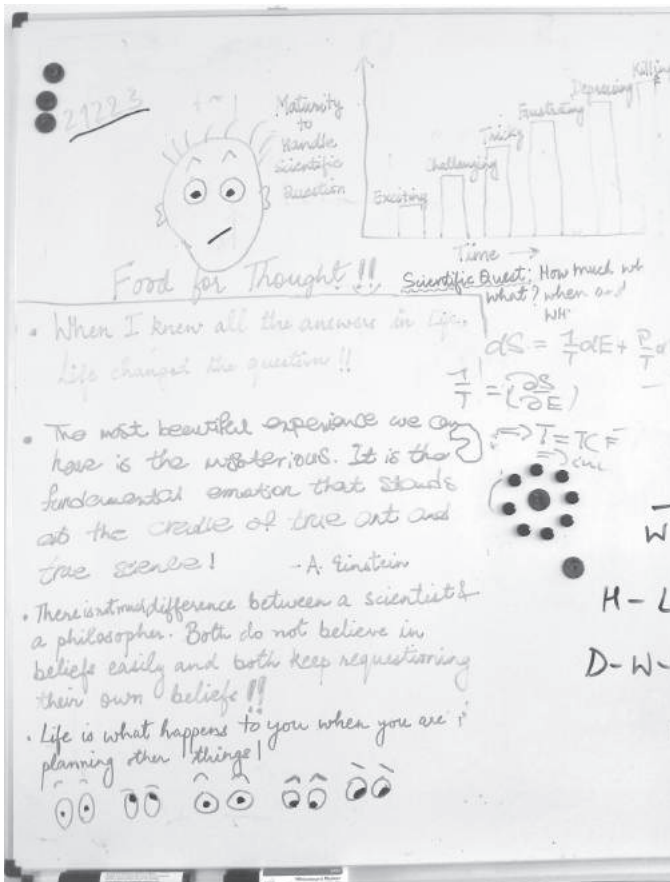 21223
Maturity
to
Handle
Scientific
Question
Exciting
Challenging
Tricky
Frustrating
Depressing
Killing
Time →
Food for Thought!!
Scientific Quest; How much
what? when and
• When I knew all the answers in life,
Life changed the question!!
dS = 1/T dE + P/T
1/T = (∂S/∂E)
• The most beautiful experience we can
have is the misterious. It is the
fundamental emotion that stands
at the cradle of true art and
true science!
- A. Einstein
• There isn't much difference between a scientist &
a philosopher. Both do not believe in
beliefs easily and both keep requestioning
their own beliefs!!
• Life is what happens to you when you are
planning other things!
W
H - L
D - W -